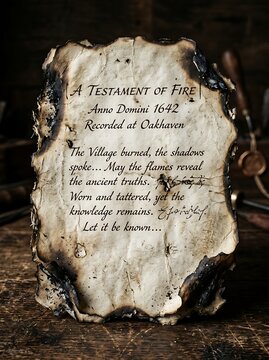 A Testament of Fire
Anno Domini 1642
Recorded at Oakhaven
The Village burned, the shadows
spoke... May the flames reveal
the ancient truths.
Worn and tattered, yet the
knowledge remains.
Let it be known...